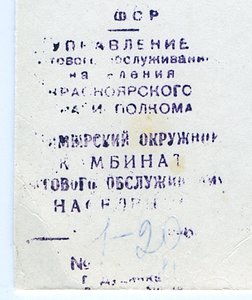 ФСР
УПРАВЛЕНИЕ
тового обслуживани
населения
КРАСНОЯРСКОГО
КРАЙИСПОЛКОМА
ЙМЫРСКИЙ ОКРУЖНО
КОМБИНАТ
ЫТОВОГО ОБСЛУЖИВАНИ
НАСЕЛЕНИ
1-20
№
г. Дудинка